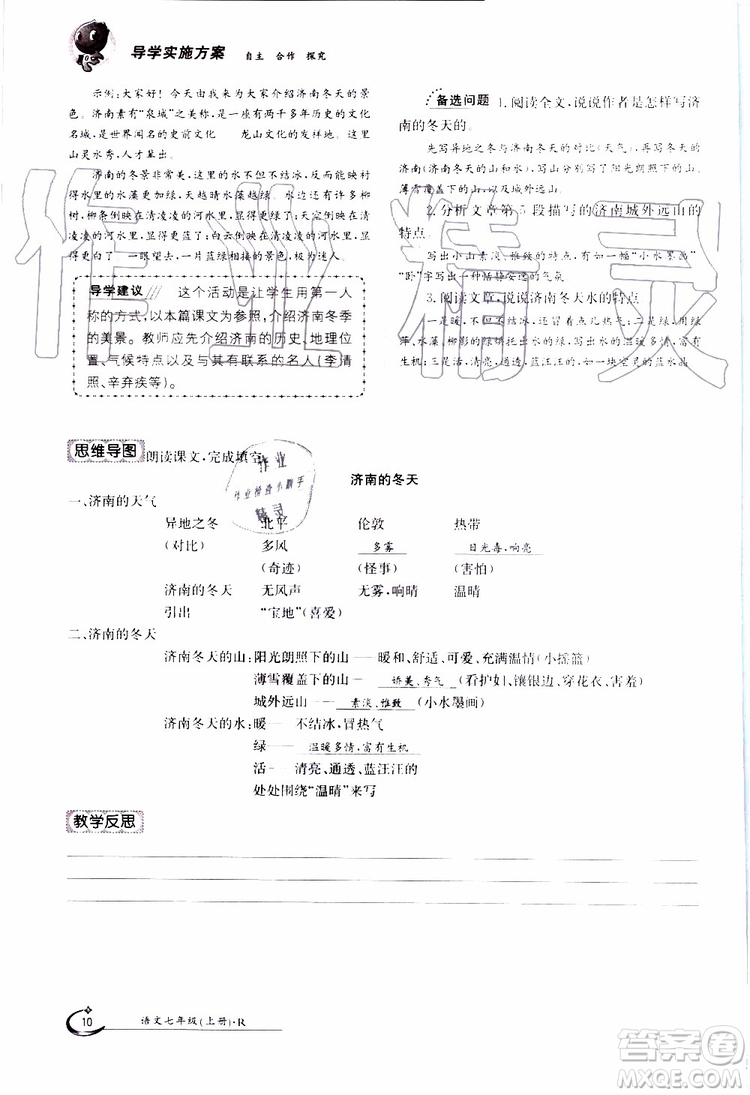 导学实施方案 自主 合作 探究
示例:大家好!今天由我来为大家介绍济南冬天的景
色。济南素有“泉城”之美称,是一座有两千多年历史的文化
名城,是世界闻名的史前文化 龙山文化的发祥地。这里
山灵水秀,人才辈出。
济南的冬景非常美。这里的水不但不结冰,反映村
得水里的水藻更绿,天越晴水藻越绿。水边还有许多柳
树,柳条倒映在清凌凌的河水里,显得更柔了;天空倒映在清
凌凌的河水里,显得更蓝了;白云倒映在清凌凌的河水里,显
得更白了 一眼望去,一片蓝绿相接的景色,极为迷人。
导学建议 这个活动是让学生用第一人
称的方式,以本篇课文为参照,介绍济南冬季
的美景。教师应先介绍济南的历史、地理位
置、气候特点以及与其有联系的名人(李清
照、辛弃疾等)。
备选问题 1.阅读全文,说说作者是怎样写济
南的冬天的。
先写异地的冬天与济南的冬天的对比(天气),再写
济南的冬天(济南冬天的山和水),写出了阳光朗照下的山、
薄雪覆盖下的山,以及城外远山。
2.分析文章第5段描写的济南城外远山的
特点
写出小山素淡、雅致的意境,有如一幅“小水墨画”
“卧”字写出一种恬静安适的气氛
3.阅读文章,说说济南冬天水的特点
一是暖,不但不结冰,反而冒着点儿热气;二是绿,用
水藻、柳影的绿烘托出水的绿,写出水的温暖多情、富有
生机;三是活,清亮,通透,蓝汪汪的,如一块空灵的蓝水晶
思维导图 朗读课文,完成填空
济南的冬天
一、济南的天气
异地之冬 北平 伦敦 热带
(对比) 多风 多雾 日光毒,响亮
(奇迹) (怪事) (害怕)
济南的冬天 无风声 无雾,响晴 温晴
引出 “宝地”(喜爱)
二、济南的冬天
济南冬天的山:阳光朗照下的山 — 暖和、舒适、可爱、充满温情(小摇篮)
薄雪覆盖下的山 — 娇美、秀气 (看护妇、镶银边、穿花衣、害羞)
城外远山 — 素淡、雅致 (小水墨画)
济南冬天的水:暖 — 不结冰,冒热气
绿 — 温暖多情,富有生机
活 — 清亮、通透、蓝汪汪的
处处围绕“温晴”来写
教学反思
10 语文七年级(上册)·R
作业
作业检查小助手
精灵
作业精灵
答案圈
MXQE.COM